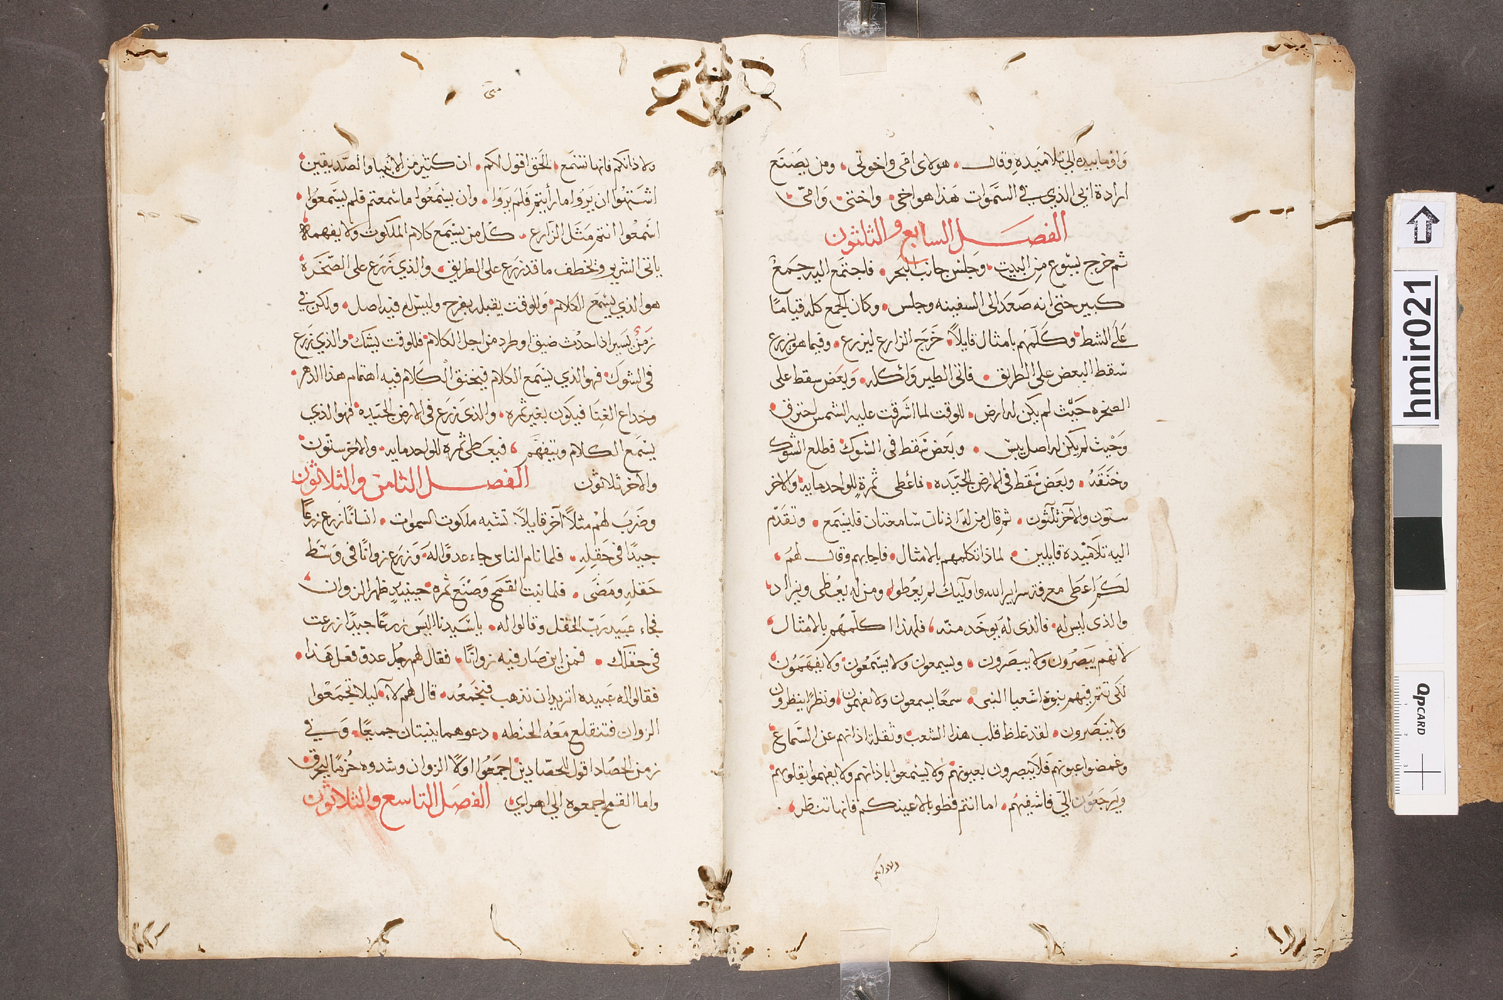 واومابيده الي تلاميده وقال هولاى امى واخوتي ومن يصنع
ارادة ابي الذي في السموات هذا هو اخي واختي وامى
الفصل السابع والثلثون
ثم خرج يسوع من البيت وجلس جانب البحر فاجتمع اليه جمع
كبير حتى انه صعد الى السفينه وجلس وكان الجمع كله قيامًا
على الشط وكلمهم بامثال قايلاً خرج الزارع ليزرع وفيما هو يزرع
سقط البعض على الطريق فاتى الطير واكله وبعض سقط على
الصخره حيث لم يكن له ارض للوقت لما اشرقت عليه الشمس احترق
وحيث لم يكن له اصل يبس وبعض سقط في الشوك فطلع الشوك
وخنقه وبعض سقط في الارض الجيده فاعطى ثمرة للواحد مايه والاخر
ستون والاخر ثلثون ثم قال من له اذنان سامعتان فليسمع وتقدم
اليه تلاميده قايلين لماذا تكلمهم بالامثال فاجابهم وقال لهم
لكم اعطى معرفة سراير الله واوليك لم يعطوا ومن له يعطى ويزاد
والذى ليس له فالذى له يوخد منه فلهذا اكلمهم بالامثال
لانهم يبصرون ولا يبصرون ويسمعون ولا يسمعون ولا يفهمون
لكى تتم فيهم نبوة اشعيا النبى سمعًا يسمعون ولا تفهمون ونظرًا ينظرون
ولا يبصرون لقد غلظ قلب هذا الشعب وثقلة اذانهم عن السماع
وغمضوا عيونهم فلا يبصرون بعيونهم ولا يسمعوا باذانهم ولا يفهموا بقلوبهم
ويرجعون الي فاشفيهم اما انتم فطوبا لاعينكم فانها تنظر
ولاذانكم
متى
ولاذانكم فانها تسمع الحق اقول لكم ان كثير من الانبيا والصديقين
اشتهوا ان يروا ما رأيتم فلم يروا وان يسمعوا ما سمعتم فلم يسمعوا
اسمعوا انتم مثل الزارع كل من يسمع كلام الملكوت ولا يفهمه
ياتى الشرير ويخطف ما قد زرع على الطريق والذي زرع على الصخرة
هو الذي يسمع الكلام وللوقت يقبله بفرح وليس له فيه اصل ولكن في
زمن يسير اذا حدث ضيق او طرد من اجل الكلام فللوقت يشك والذي زرع
في الشوك فهو الذي يسمع الكلام فيخنق الكلام فيه اهتمام هذا الدهر
وخداع الغنا فيكون بغير ثمره والذى زرع في الارض الجيده فهو الذي
يسمع الكلام ويتفهم فيعطى ثمرة للواحد مايه والاخر ستون
والاخر ثلاثون الفصل الثامن والثلاثون
وضرب لهم مثلاً آخر قايلاً تشبه ملكوت السموات انسانًا زرع زرعًا
جيدًا في حقله فلما نام الناس جاء عدو له وزرع زوانًا في وسط
حقله ومضى فلما نبت القمح وصنع ثمره حينيدٍ ظهر الزوان
فجاء عبيد رب الحقل وقالوا له ياسيدنا اليس زرعًا جيدًا زرعت
في حقلك فمن اين صار فيه زوانًا فقال لهم رجل عدو فعل هذا
فقالوا له عبيده اتريد ان نذهب فنجمعه قال لهم لا ليلا تجمعوا
الزوان فتنقلع معه الحنطه دعوهما ينبتان جميعًا وفي
زمن الحصاد اقول للحصادين اجمعوا اولًا الزوان وشدوه حزمًا ليحرق
واما القمح اجمعوه الي اهراي الفصل التاسع والثلاثون
hmir021
QPCARD